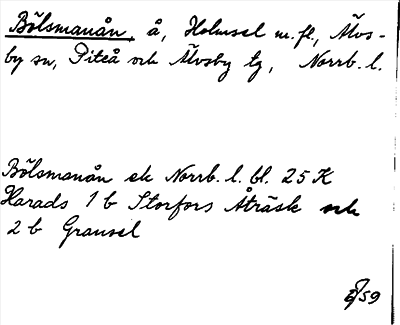 Bölsmanån, å, Holmsel m.fl., Älvs-
by sn, Piteå och Älvsby tg, Norrb. l.
Bölsmanån ek Norrb. l. bl. 25 K
Harads 1 b Storfors Åträsk och
2 b Gransel
59